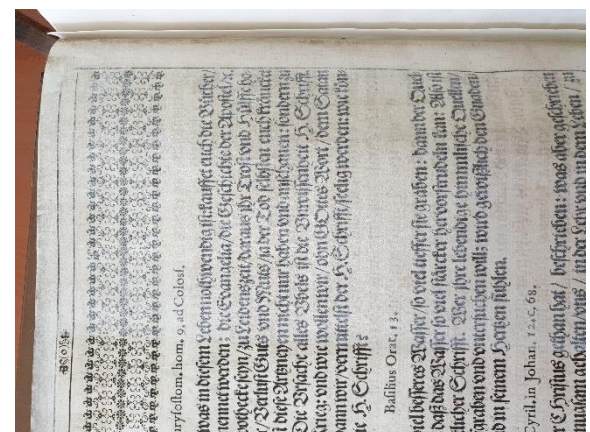 ryſoſtom. hom. 9. ad Coloſſ.
was in dieſem Leben nothwendig iſt: kauffet euch die Bücher/
ennet werden: die Evangelia/ die Geſchichte der Apoſtel/
ſeyn/ zu Leidenszeit/ daraus ihr Troſt vnd Hülffe
/ Verluſt Guts vnd Muts/ ja der Tod ſelbſten euch kräncket
dieſe Artzney: nicht nur haben vnd anſchauen: ſondern zu
Die Vrſache alles Übels iſt die Unwiſſenheit H. Schrifft
krieg: vnd wie wollen wir/ ohn GOttes Wort/ dem Satan
ann wir/ vermittelſt der H. Schrifft/ ſeelig worden: wie kön-
ie H. Schrifft?
Baſilius Orat. 13.
viel beſſeres Waſſer/ ſo viel tieffer ſie graben: dann der Quel
daß das Waſſer ſo viel ſtärcker hervorſtrudeln kan: Alſo iſt
tlicher Schrifft. Wer ihre lebendige himmliſche Quellen/
graben vnd vnterſuchen will: wird gewißlich den Gnaden
d in ſeinem Hertzen fühlen.
Cyril. in Johar. 12. c. 68.
r Chriſtus gethan hat/ beſchrieben: was aber geſchrieben
nugſam in der Lehr vnd in dem Leben/ zu